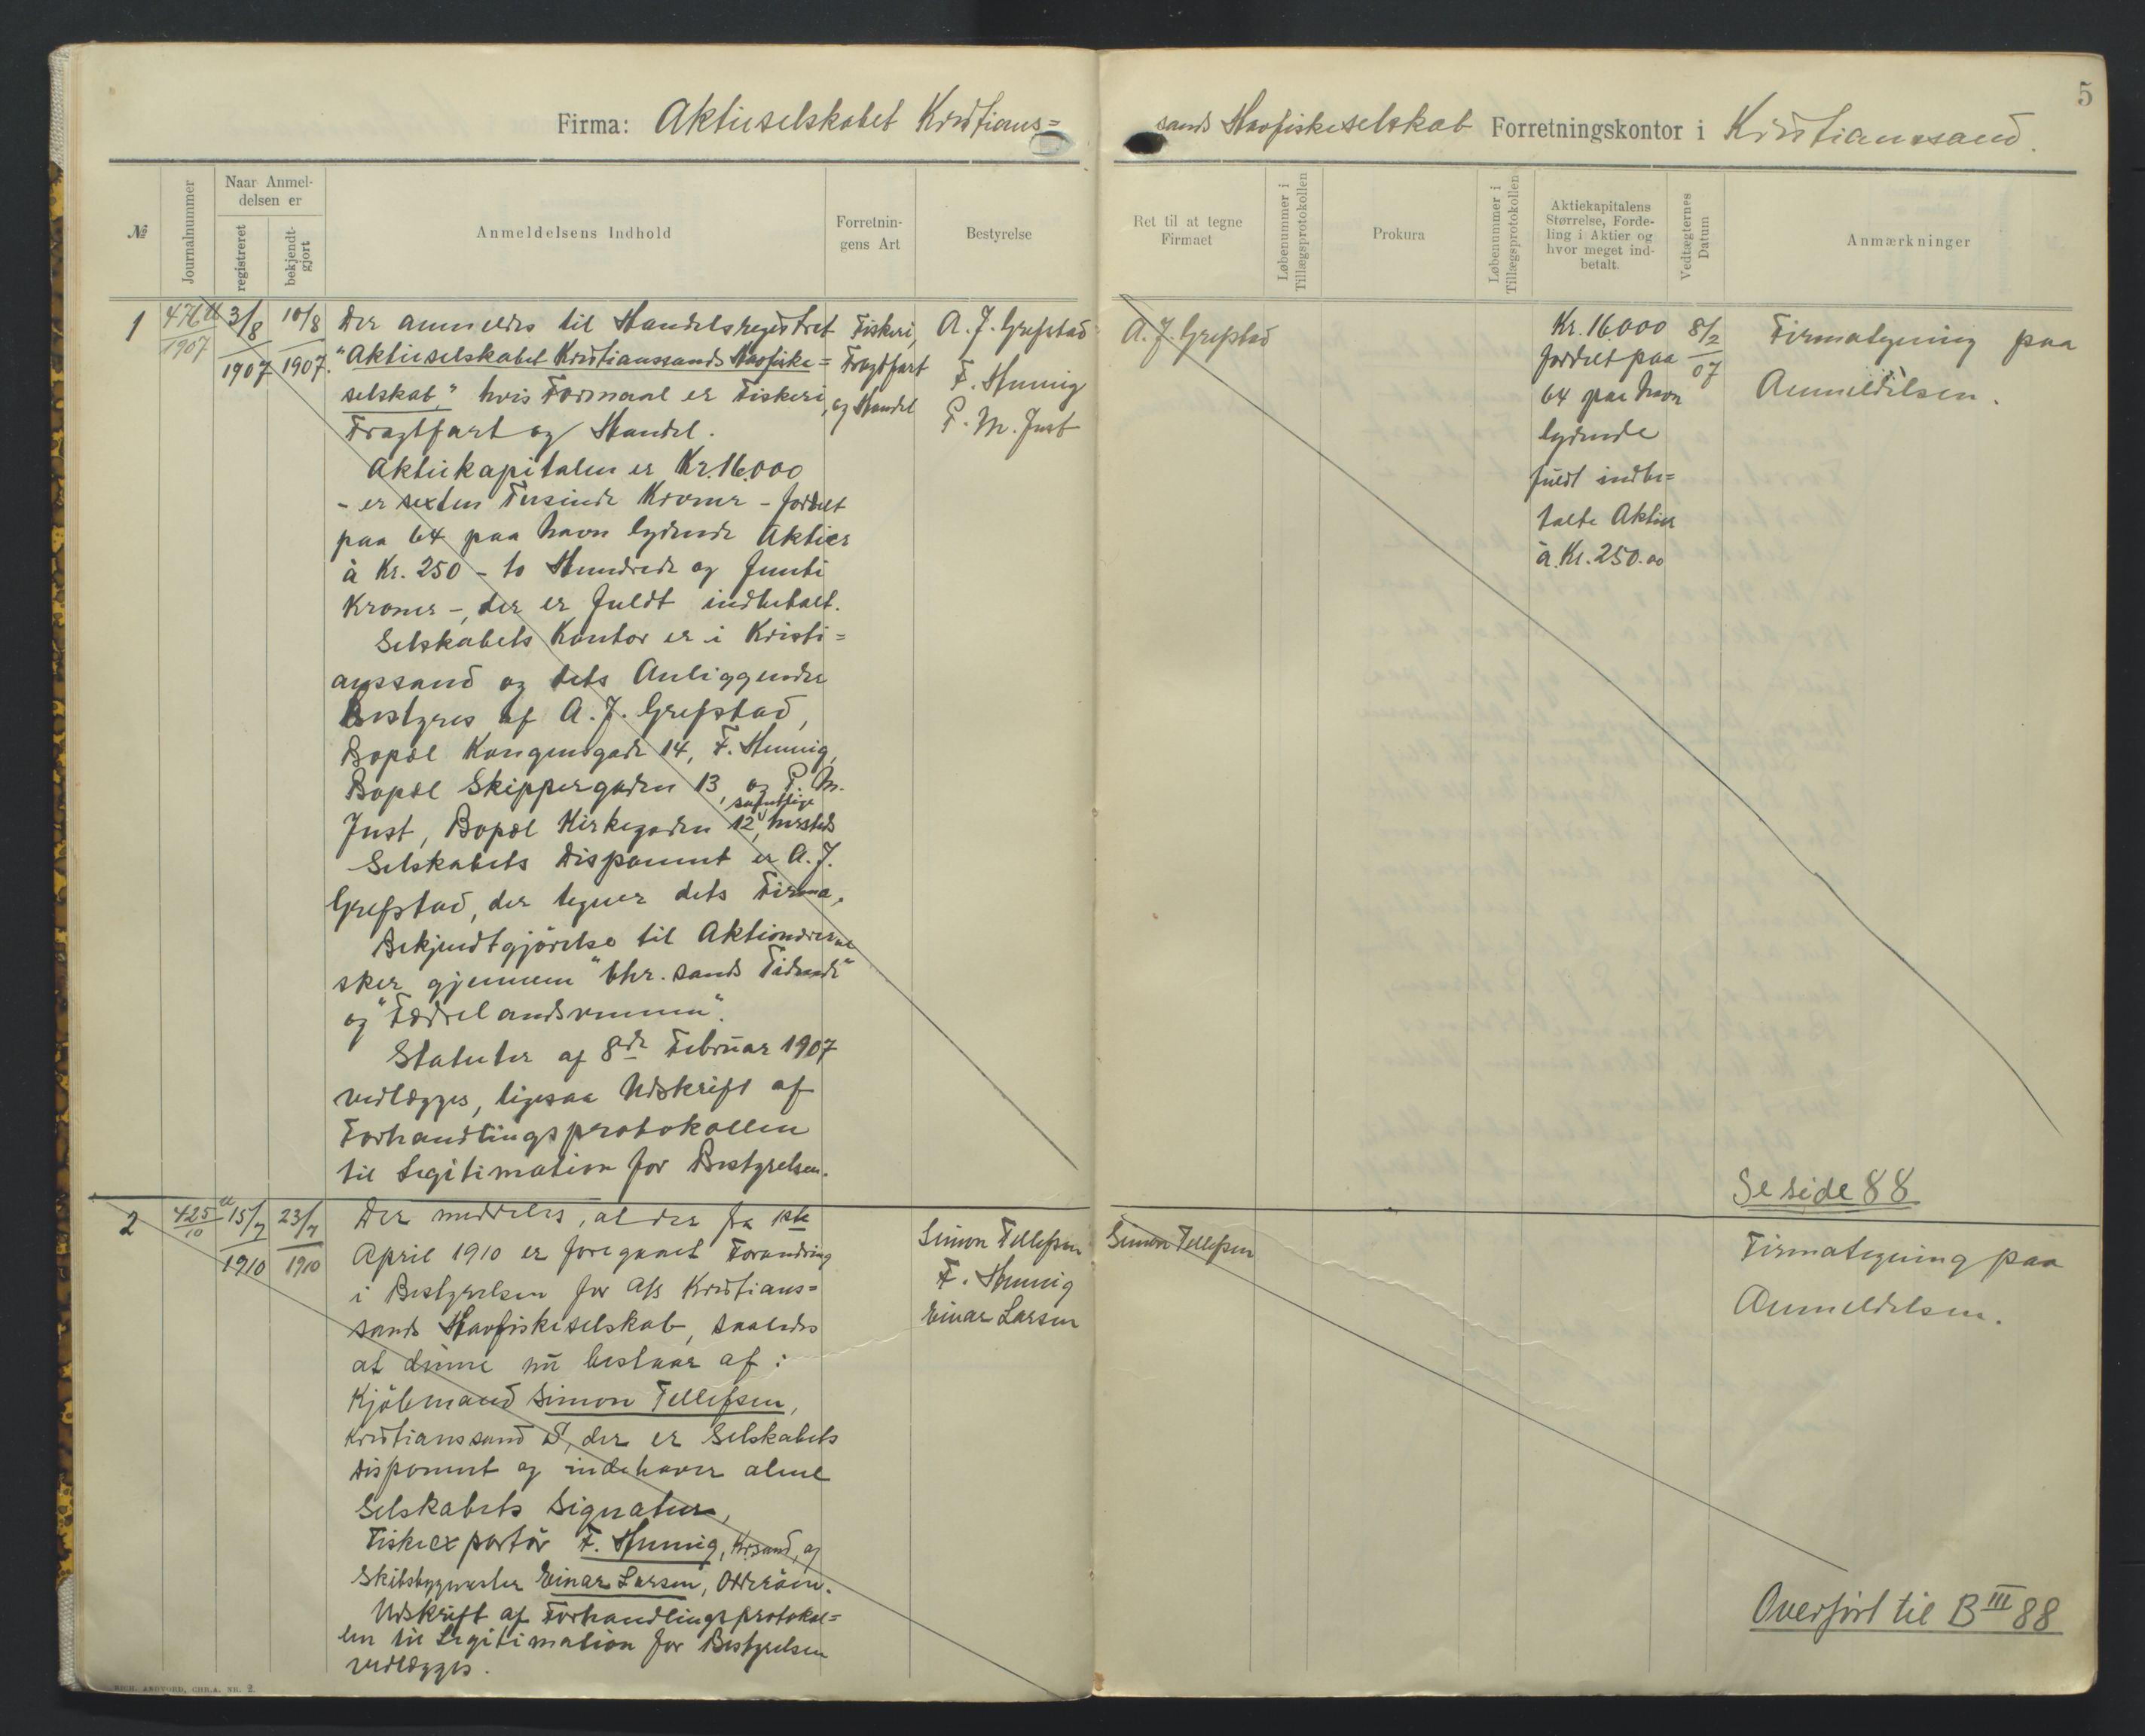 5
Firma: Aktieselskabet Kristians=
sands Havfiskeselskab Forretningskontor i Kristianssand.
№
Journalnummer
Naar Anmel-
delsen er
registreret
bekjendt-
gjort
Anmeldelsens Indhold
Forretnin-
gens Art
Bestyrelse
Ret til at tegne
Firmaet
Løbenummer i
Tillægsprotokollen
Prokura
Løbenummer i
Tillægsprotokollen
Aktiekapitalens
Størrelse, Forde-
ling i Aktier og
hvor meget ind-
betalt.
Vedtægternes
Datum
Anmærkninger
1
476
1907
3/8
1907
10/8
1907.
Der anmeldes til Handelsregistret
"Aktieselskabet Kristianssands Havfiske=
selskab," hvis Formaal er Fiskeri,
Fragtfart og Handel.
Aktiekapitalen er Kr. 16.000
- er sexten Tusinde Kroner - fordelt
paa 64 paa Navn lydende Aktier
à Kr. 250 - to Hundrede og femti
Kroner -, der er fuldt indbetalt.
Selskabets Kontor er i Kristi=
anssand og dets Anliggender
Bestyres af A. J. Grefstad,
Bopæl Kongensgade 14, F. Hennig,
Bopæl Skippergaden 13, og P. M.
Just, Bopæl Kirkegaden 12, samtlige hersteds
Selskabets Disponent er A. J.
Grefstad, der tegner dets Firma.
Bekjendtgjörelse til Aktionærerne
sker gjennem "Chr.sands Tidende"
og "Fædrelandsvennen".
Statuter af 8de Februar 1907
vedlægges, ligesaa Udskrift af
Forhandlingsprotokollen
til Legitimation for Bestyrelsen.
Fiskeri,
Fragtfart
og Handel
A. J. Grefstad
F. Hennig
P. M. Just
A. J. Grefstad
Kr. 16.000
fordelt paa
64 paa Navn
lydende
fuldt indbe=
talte Aktier
à Kr. 250.00
8/2
07
Firmategning paa
Anmeldelsen.
Se side 88
2
425
10
15/7
1910
23/7
1910
Der meddeles, at der fra 1ste
April 1910 er foregaaet Forandring
i Bestyrelsen for A/S Kristians=
sands Havfiskeselskab, saaledes
at denne nu bestaar af:
Kjöbmand Simon Tellefsen,
Kristianssand S, der er Selskabets
Disponent og indehaver alene
Selskabets Signatur,
Fiskeexportör F. Hennig, Kr.sand, og
Skibsbygmester Einar Larsen, Odderöen.
Udskrift af Forhandlingsprotokol=
len til Legitimation for Bestyrelsen
vedlægges.
Simon Tellefsen
F. Hennig
Einar Larsen
Simon Tellefsen
Firmategning paa
Anmeldelsen.
Overfört til B III 88
CHR.A. NR. 2.